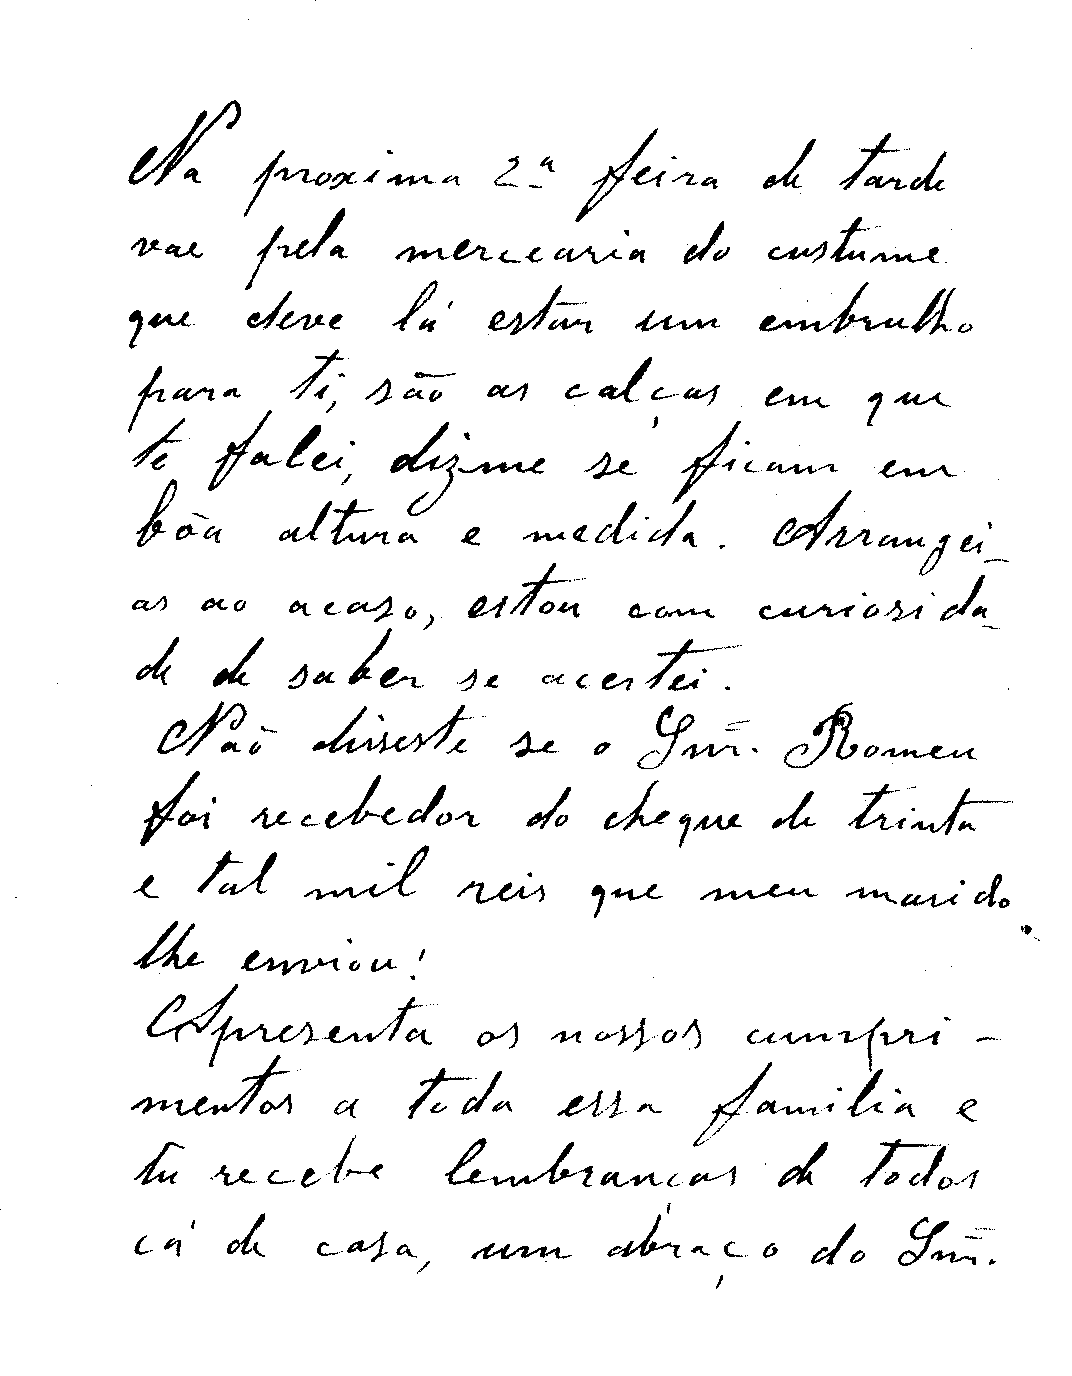 Na proxima 2ª feira de tarde
vae pela mercearia do custume
que deve lá estar um embrulho
para ti, são as calças em que
te falei, dizme se ficam em
bôa altura e medida. Arrangei-
as ao acaso, estou com curiosida-
de de saber se acertei.
Não disseste se o Snr. Romeu
foi recebedor do cheque de trinta
e tal mil reis que meu marido
lhe enviou!
Apresenta os nossos cumpri-
mentos a toda essa familia e
tu recebe lembranças de todos
cá de casa, um abraço do Snr.